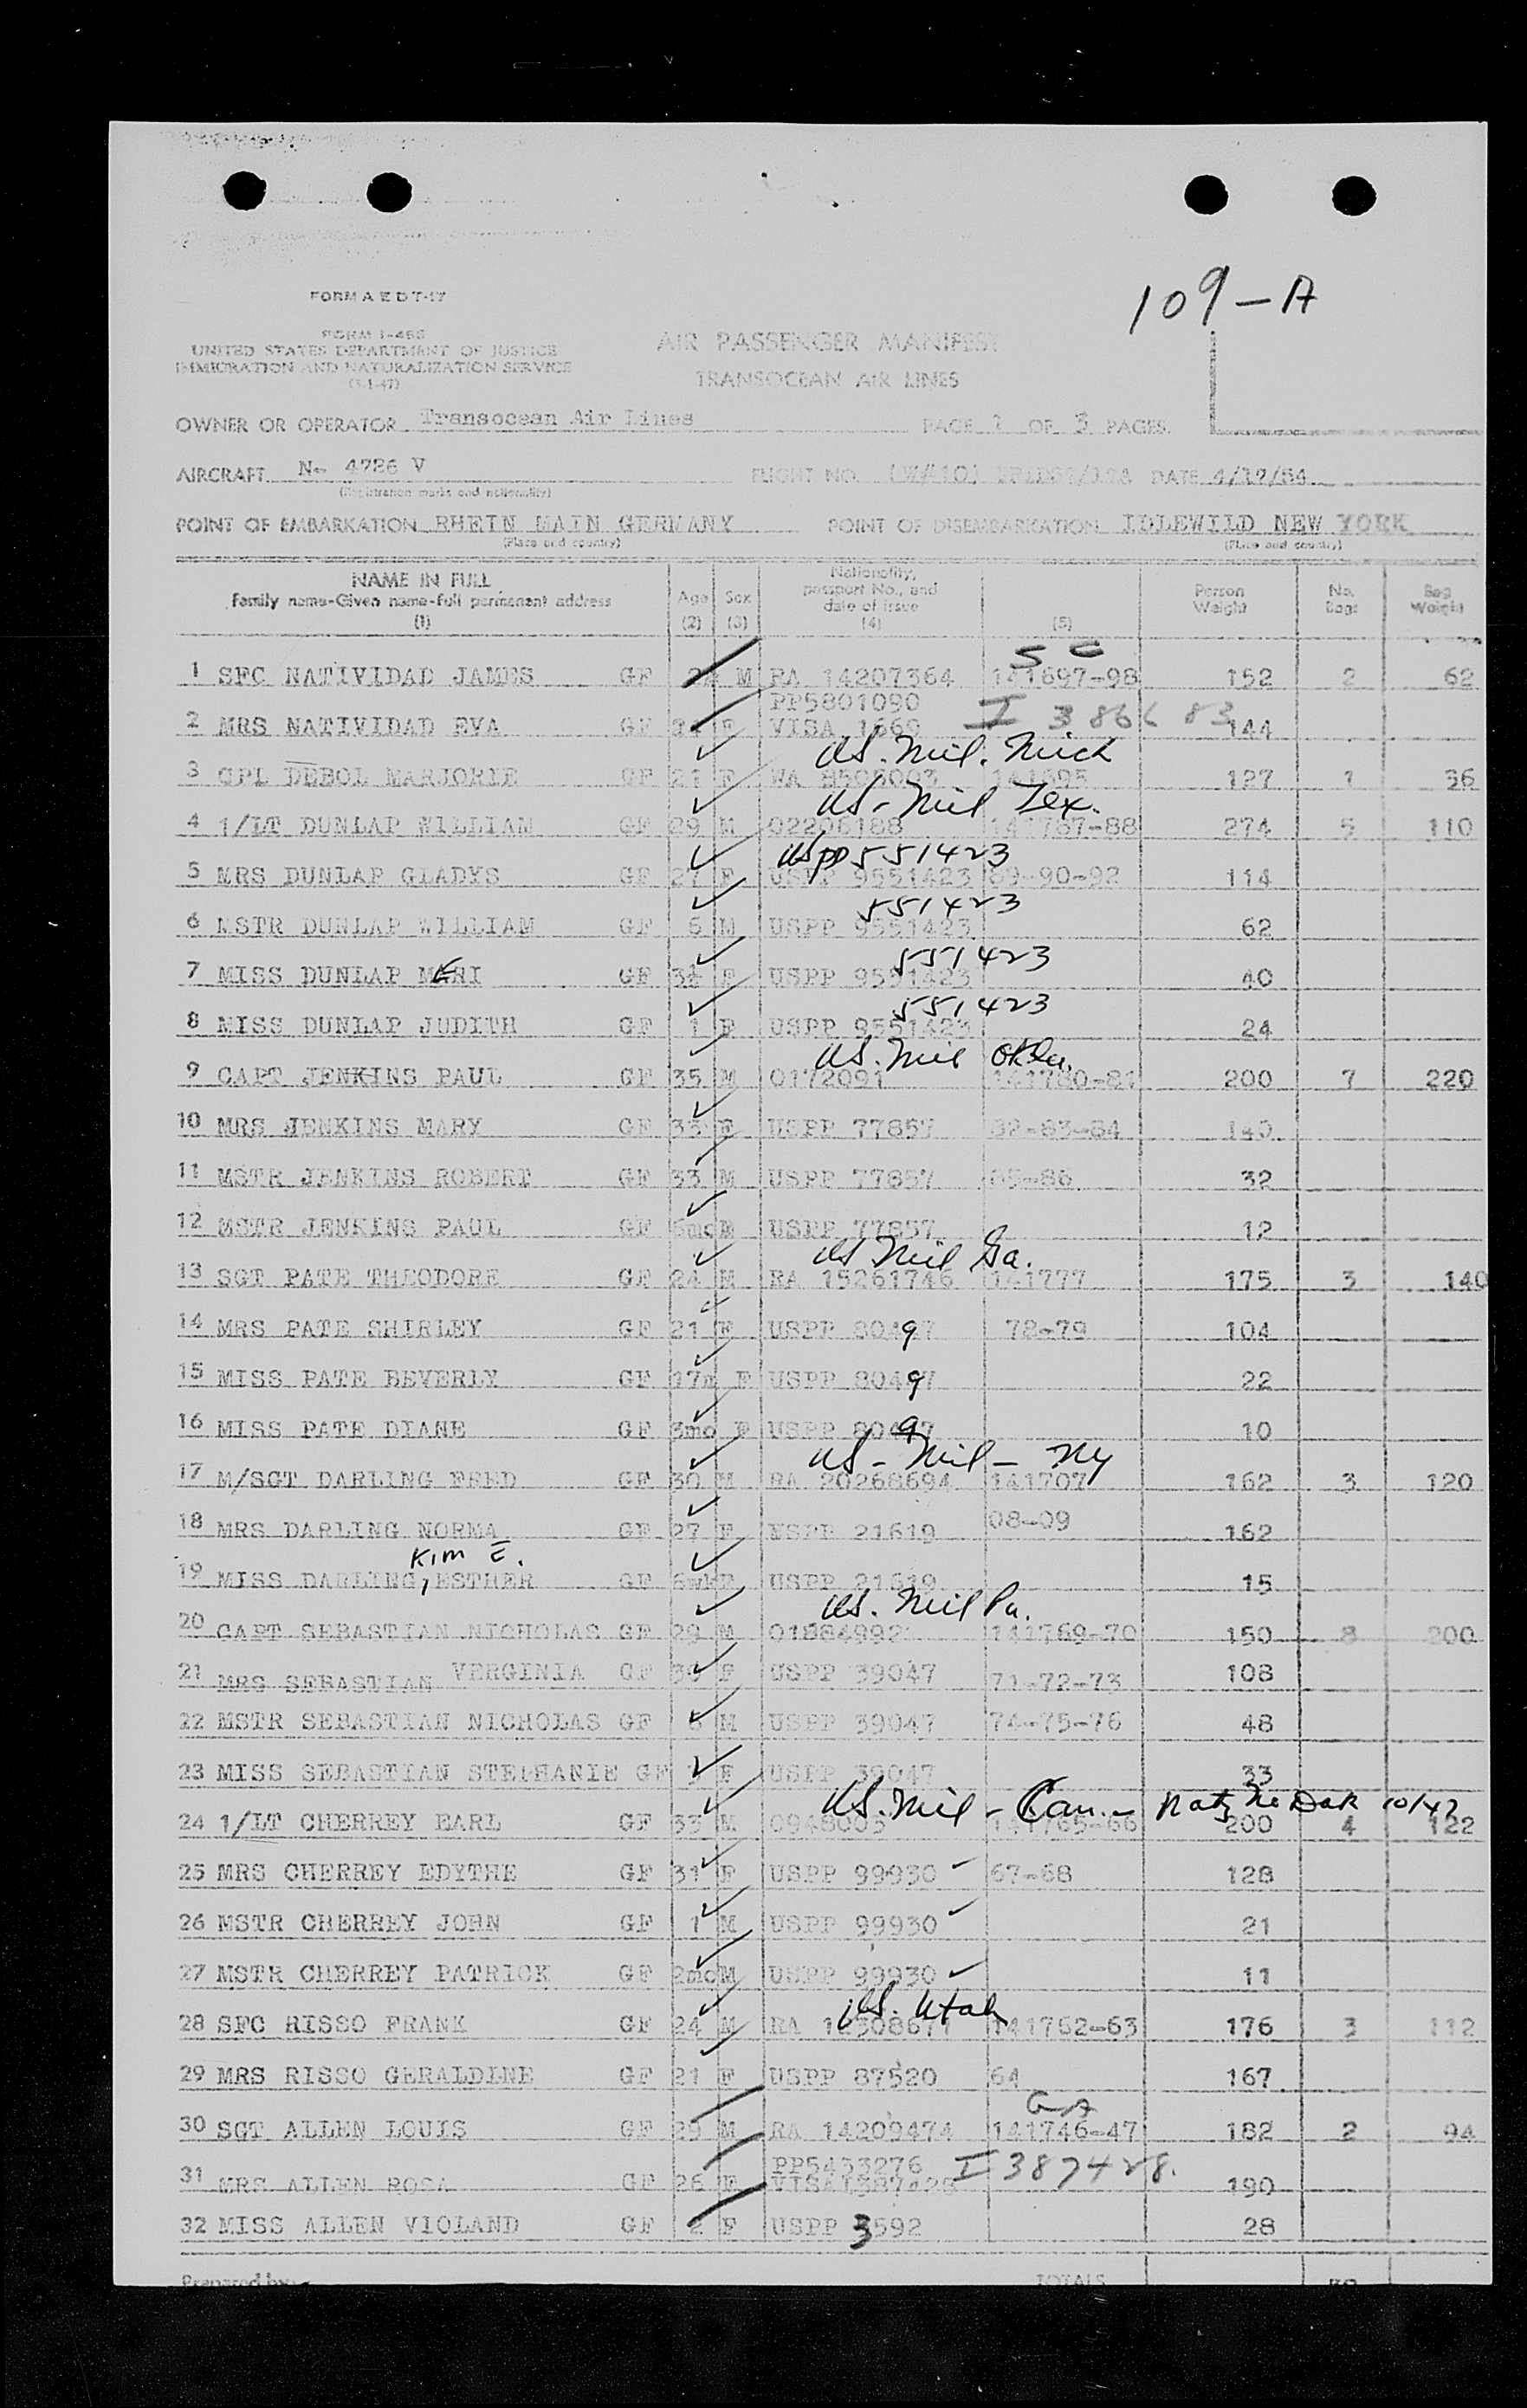 109-A
FORM A E D T-17
FORM I-466
UNITED STATES DEPARTMENT OF JUSTICE
IMMIGRATION AND NATURALIZATION SERVICE
AIR PASSENGER MANIFEST
TRANSOCEAN AIR LINES
OWNER OR OPERATOR Transocean Air Lines PAGE 1 OF 3 PAGES
AIRCRAFT N- 4726 V FLIGHT NO. DATE 4/17/54
(Registration marks and nationality)
POINT OF EMBARKATION RHEIN MAIN GERMANY POINT OF DISEMBARKATION IDLEWILD NEW YORK
(Place and country) (Place and country)
NAME IN FULL Age Sex Nationality, passport No., and date of issue Person Weight No. Bags Bag Weight
Family name-Given name-full permanent address
(1) (2) (3) (4) (5)
S C
1 SFC NATIVIDAD JAMES GF M RA 14207364 141697-98 152 2 62
PP5801090 I 386683
2 MRS NATIVIDAD EVA GF F VISA 1669 144
US. Mil. Mich
3 CPL DEBOL MARJORIE GF 21 F WA 8505003 141695 127 1 36
US - Mil Tex.
4 1/LT DUNLAP WILLIAM GF 29 M 02206188 141787-88 274 5 110
USpp 551423
5 MRS DUNLAP GLADYS GF 27 F USPP 9551423 89-90-92 114
551423
6 MSTR DUNLAP WILLIAM GF 6 M USPP 9551423 62
551423
7 MISS DUNLAP MERI GF 3½ F USPP 9551423 40
551423
8 MISS DUNLAP JUDITH GF 1 F USPP 9551423 24
US. Mil Okla.
9 CAPT JENKINS PAUL GF 35 M 0172091 141780-81 200 7 220
10 MRS JENKINS MARY GF 33 F USPP 77857 82-83-84 140
11 MSTR JENKINS ROBERT GF 33 M USPP 77857 85-86 32
12 MSTR JENKINS PAUL GF 6mo M USPP 77857 12
US Mil Ga.
13 SGT PATE THEODORE GF 24 M RA 15261746 141777 175 3 140
14 MRS PATE SHIRLEY GF 21 F USPP 80497 78-79 104
15 MISS PATE BEVERLY GF 17m F USPP 80497 22
16 MISS PATE DIANE GF 3mo F USPP 80497 10
US - Mil - NY
17 M/SGT DARLING FRED GF 30 M RA 20268694 141707 162 3 120
18 MRS DARLING NORMA GF 27 F USPP 21619 08-09 162
Kim E.
19 MISS DARLING, ESTHER GF 6wk F USPP 21619 15
US. Mil Pa.
20 CAPT SEBASTIAN NICHOLAS GF 29 M 01884992 141769-70 150 8 200
21 MRS SEBASTIAN VERGINIA GF 30 F USPP 39047 71-72-73 108
22 MSTR SEBASTIAN NICHOLAS GF 6 M USPP 39047 74-75-76 48
23 MISS SEBASTIAN STEPHANIE GF F USPP 39047 33
US. Mil - Can. - Natz No Dak 10/42
24 1/LT CHERREY EARL GF 33 M 0948005 141765-66 200 4 122
25 MRS CHERREY EDYTHE GF 31 F USPP 99930 67-68 128
26 MSTR CHERREY JOHN GF 1 M USPP 99930 21
27 MSTR CHERREY PATRICK GF 2mo M USPP 99930 11
US. Utah
28 SFC RISSO FRANK GF 24 M RA 12308671 141762-63 176 3 112
29 MRS RISSO GERALDINE GF 21 F USPP 87520 64 167
GA
30 SGT ALLEN LOUIS GF 29 M RA 14209474 141746-47 182 2 94
PP5433276 I 387428.
31 MRS ALLEN ROSA GF 26 F VISA I387428 190
32 MISS ALLEN VIOLAND GF 2 F USPP 3592 28
Prepared by: TOTALS